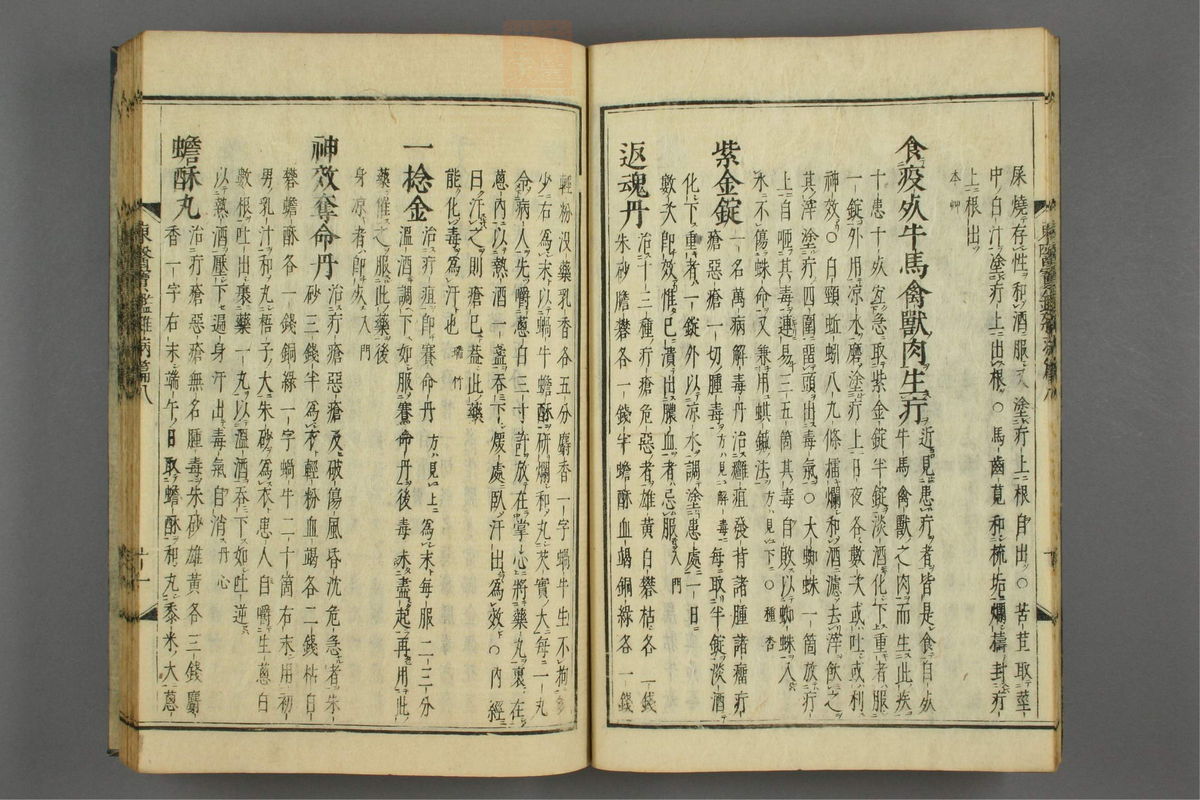 屎燒存性和酒服又塗疔上根自出○苦苣取莖
中白汁塗疔上出根○馬齒莧和梳垢爛擣封疔
上根出
本艸
食疫死牛馬禽獸肉生疔 近見患疔者皆是食自死
牛馬禽獸之肉而生此疾
十患十死宜急取紫金錠半錠淡酒化下重者服
一錠外用凉水磨塗疔上日夜各數次或吐或利
神效○白頸蚯蚓八九條擂爛和酒濾去滓飮之
其滓塗疔四圍留頭出毒氣○大蜘蛛一箇放疔
上自咂其毒連易三五箇其毒自敗以蜘蛛入
水不傷蛛命又兼用蜞鍼法方見下○種杏
紫金錠 一名萬病解毒丹治癰疽發背諸腫諸瘤疔
瘡惡瘡一切腫毒方見解毒每取半錠淡酒
化下重者一錠外以凉水調塗患處一日
數次卽效惟已潰出膿血者忌服入門
返魂丹 治十三種疔瘡危惡者雄黃白礬枯各一錢
朱砂膽礬各一錢半蟾酥血竭銅綠各一錢
輕粉沒藥乳香各五分麝香一字蝸牛生不拘多
少右爲末以蝸牛蟾酥硏爛和丸芡實大每一丸
令病人先嚼葱白三寸許放在掌心將藥丸裹在
葱內以熱酒一盞呑下煖處臥汗出爲效○內經
曰汗之則瘡已蓋此藥
能化毒爲汗也 瑞竹
一捻金 治疔疽卽賽命丹方見上爲末每服二三分
溫酒調下如服賽命丹後毒未盡起再用此
藥催之服此藥後
身凉者卽死入門
神效奪命丹 治疔瘡惡瘡及破傷風昏沈危急者朱
砂三錢半爲衣輕粉血竭各二錢枯白
礬蟾酥各一錢銅綠一字蝸牛二十箇右末用初
男乳汁和丸梧子大朱砂爲衣患人自嚼生葱白
數根吐出裹藥一丸以溫酒呑下如吐逆
以熱酒壓下遍身汗出毒氣自消丹心
蟾酥丸 治疔瘡惡瘡無名腫毒朱砂雄黃各三錢麝
香一字右末端午日取蟾酥和丸黍米大葱
東醫寶鑑雜病篇八